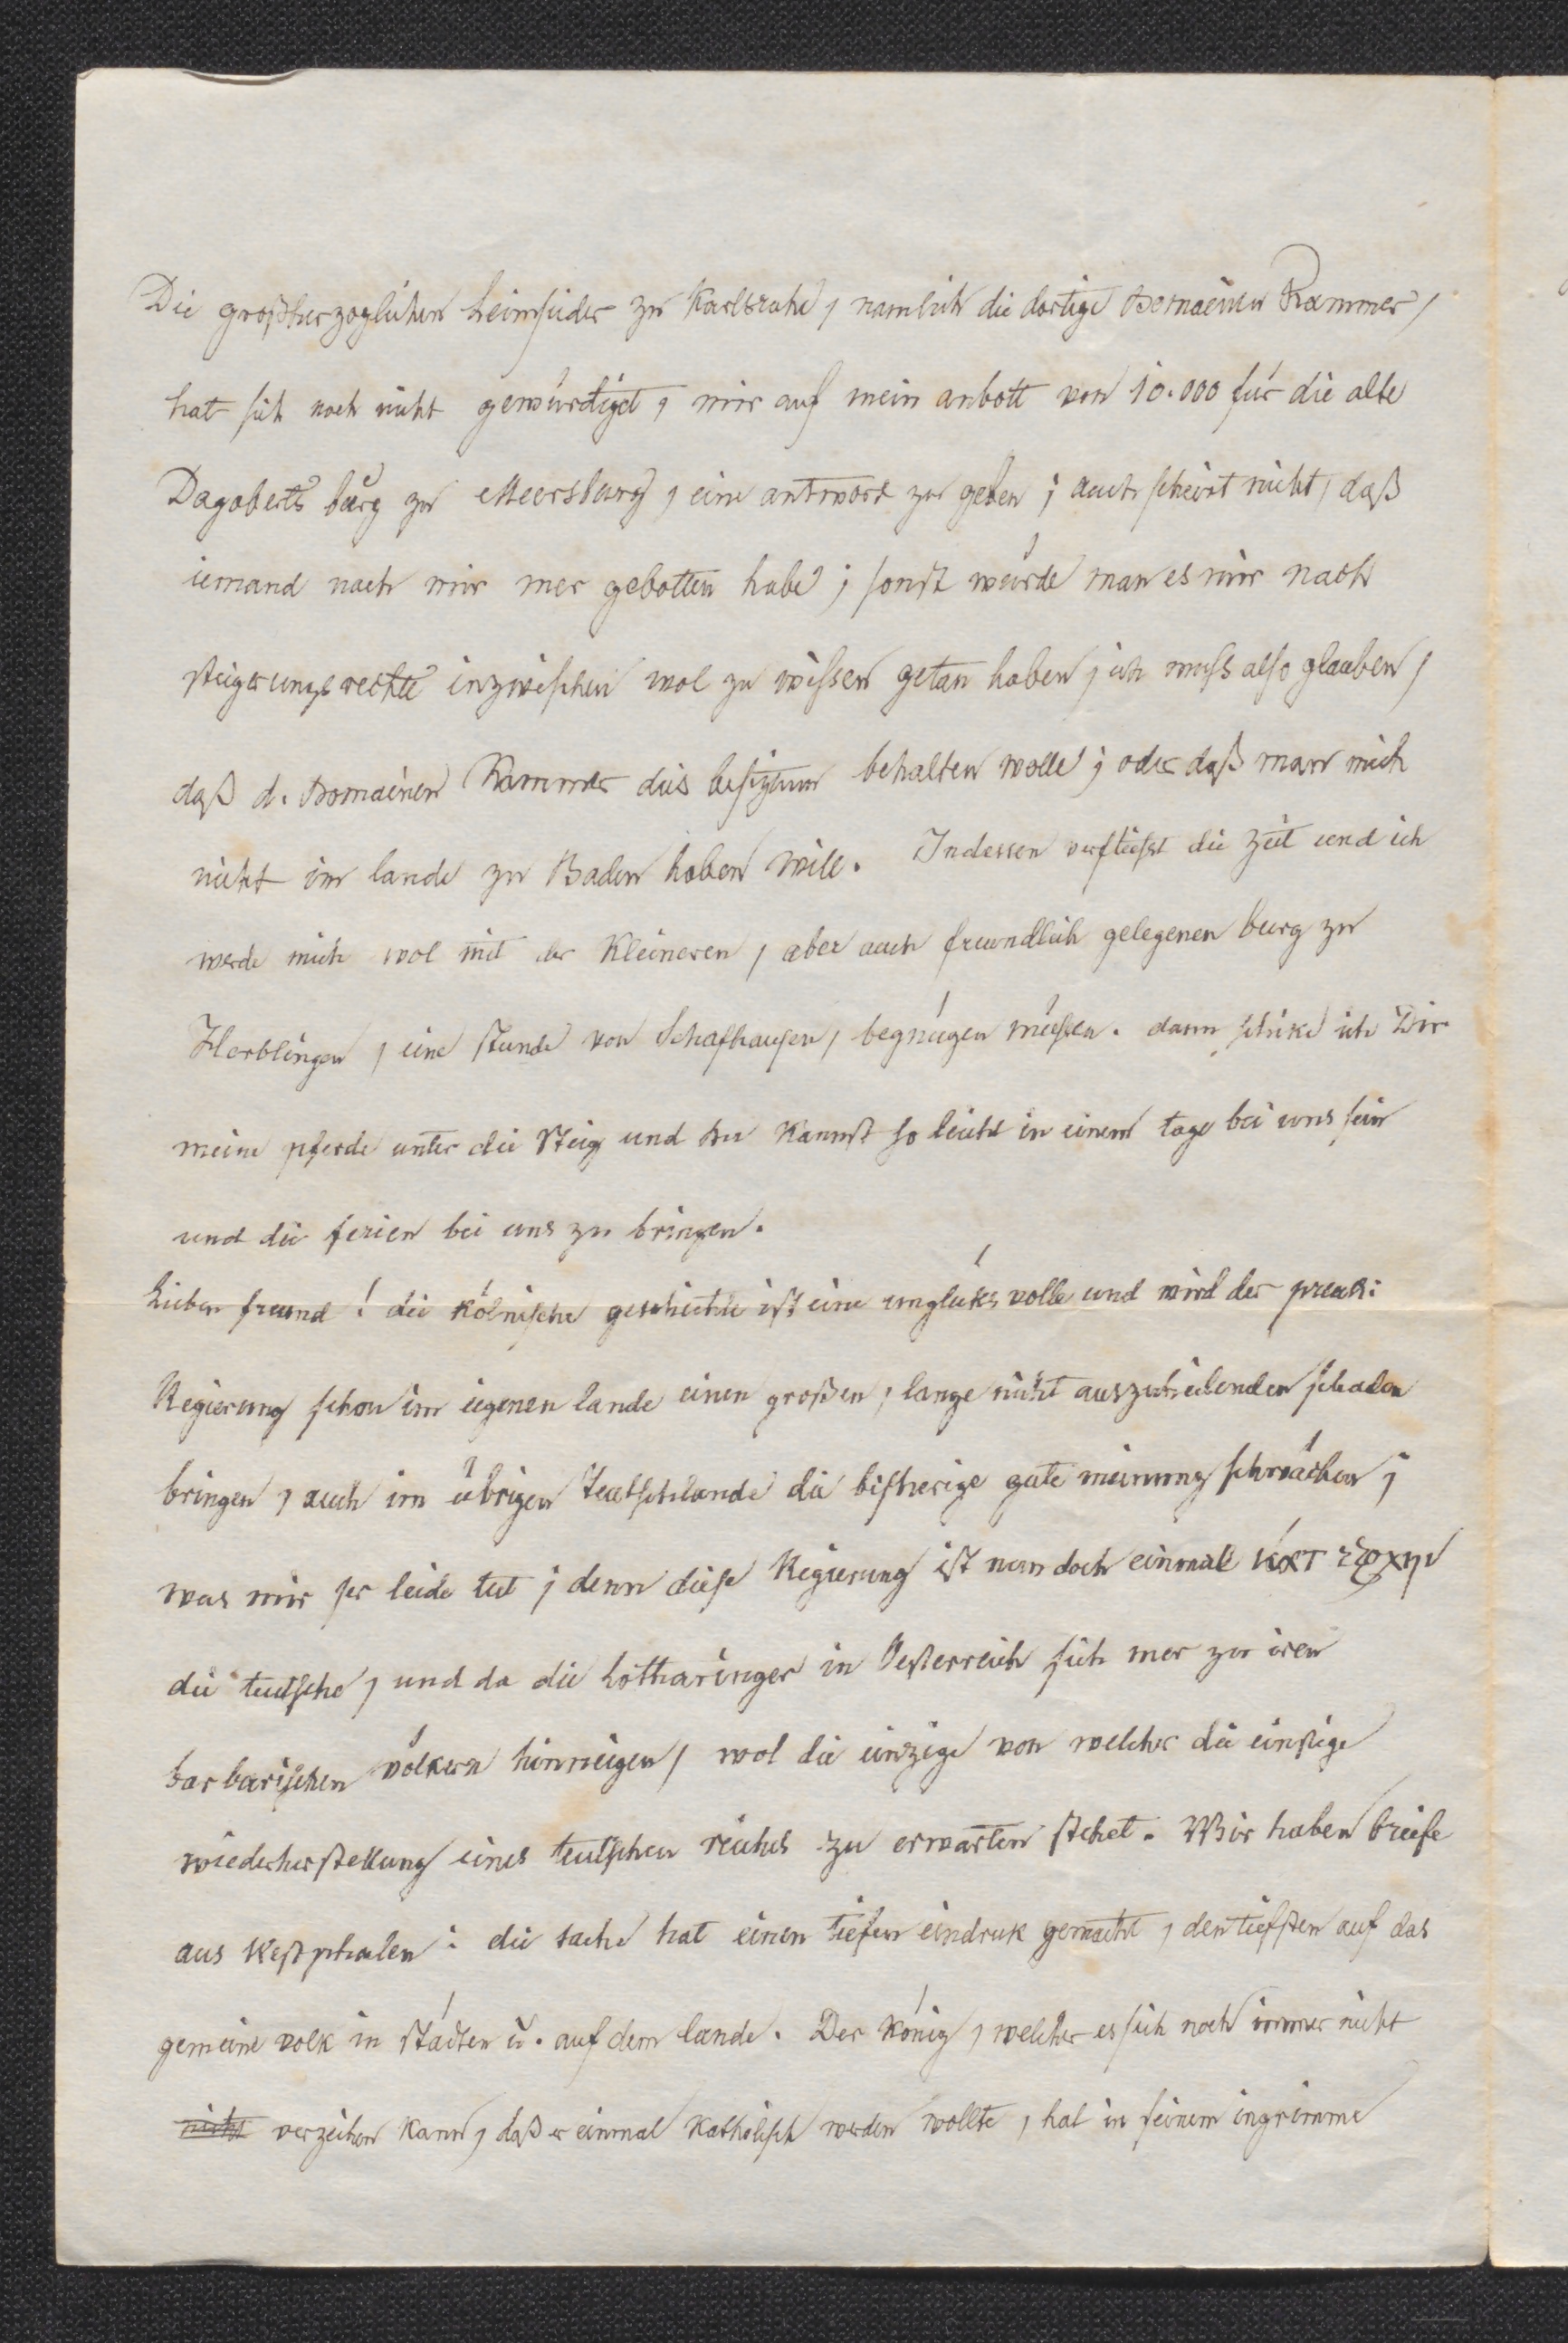 Die großherzoglichen leimsieder zu Karlsruhe, namlich die dortige Domainen Kammer,
hat sich noch nicht gewürdiget, mir auf mein anbott von 10.000 für die alte
Dagoberts burg zu Meersburg, eine antwort zu geben; auch scheint nicht, daß
iemand nach mir mer gebotten habe; sonst würde man es mir nach
steigerungsrechte inzwischen wol zu wissen getan haben; ich muss also glauben,
daß d. Domainen Kammer dies besiztum behalten wolle; oder daß man mich
nicht im lande zu Baden haben will. Indessen verfliesst die zeit und ich
werde mich wol mit der kleineren, aber auch freundlich gelegenen burg zu
Herblingen, eine stunde von Schafhausen, begnügen müssen. dann schike ich Dir
meine pferde unter die steig und Du kannst so leicht in einem tage bei uns sein
und die ferien bei uns zu bringen.
Lieber freund! die kölnische geschichte ist eine unglüksvolle und wird der preuss:
Regierung schon im eigenen lande einen großen, lange nicht auszuheilenden schaden
bringen, auch im übrigen Teutschlande die bisherige gute meinung schwächen;
was mir ser leide tut; denn diese Regierung ist nun doch einmall κατ εξοχην
die teutsche, und da die Lotharinger in Oesterreich sich mer zu iren
barbarischen völkern hinneigen, wol die einzige von welcher die einstige
wiederherstellung eines teutschen reiches zu erwarten stehet. Wir haben briefe
aus Westphalen: die sache hat einen tiefen eindruk gemacht, den tiefsten auf das
gemeine volk in städten u. auf dem lande. Der könig, welcher es sich noch immer nicht
nicht verzeihen kann, daß er einmal katholisch werden wollte, hat in seinem ingrimme